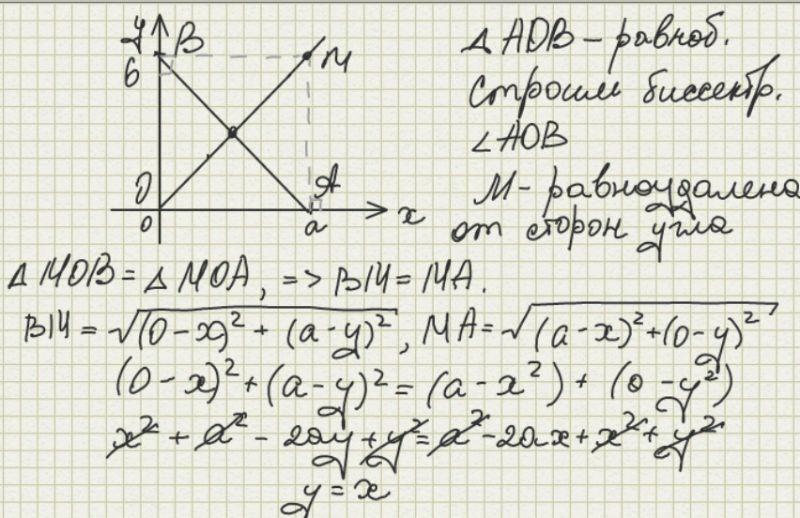 y B
б M
Δ ADB – равноб.
Строим биссектр.
∠AOB
M - равноудалена
от сторон угла
O A
o a x
Δ MOB = Δ MOA, => BM = MA.
BM = √(0-x)² + (a-y)², MA = √(a-x)² + (0-y)²
(0-x)² + (a-y)² = (a-x²) + (0-y²)
x² + a² - 2ay + y² = a² - 2ax + x² + y²
y = x